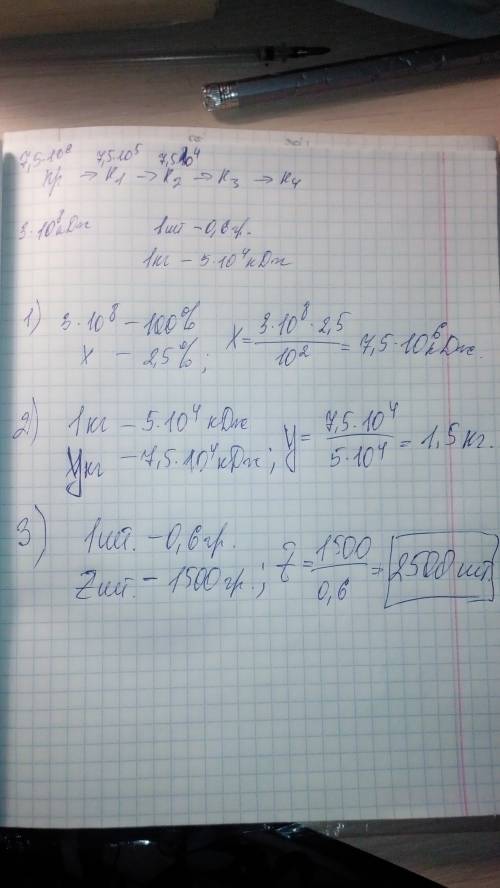 7,5·10⁶ 7,5·10⁵ 7,5·10⁴
пр. → К1 → К2 → К3 → К4
3·10⁸ кДж 1шт – 0,6 гр.
1кг – 5·10⁴ кДж
1) 3·10⁸ – 100%
x – 2,5%; X = 3·10⁸·2,5 / 10² = 7,5·10⁶ кДж.
2) 1кг – 5·10⁴ кДж
y кг – 7,5·10⁴ кДж; y = 7,5·10⁴ / 5·10⁴ = 1,5 кг.
3) 1шт. – 0,6 гр.
Z шт. – 1500 гр.; Z = 1500 / 0,6 = 2500 шт.